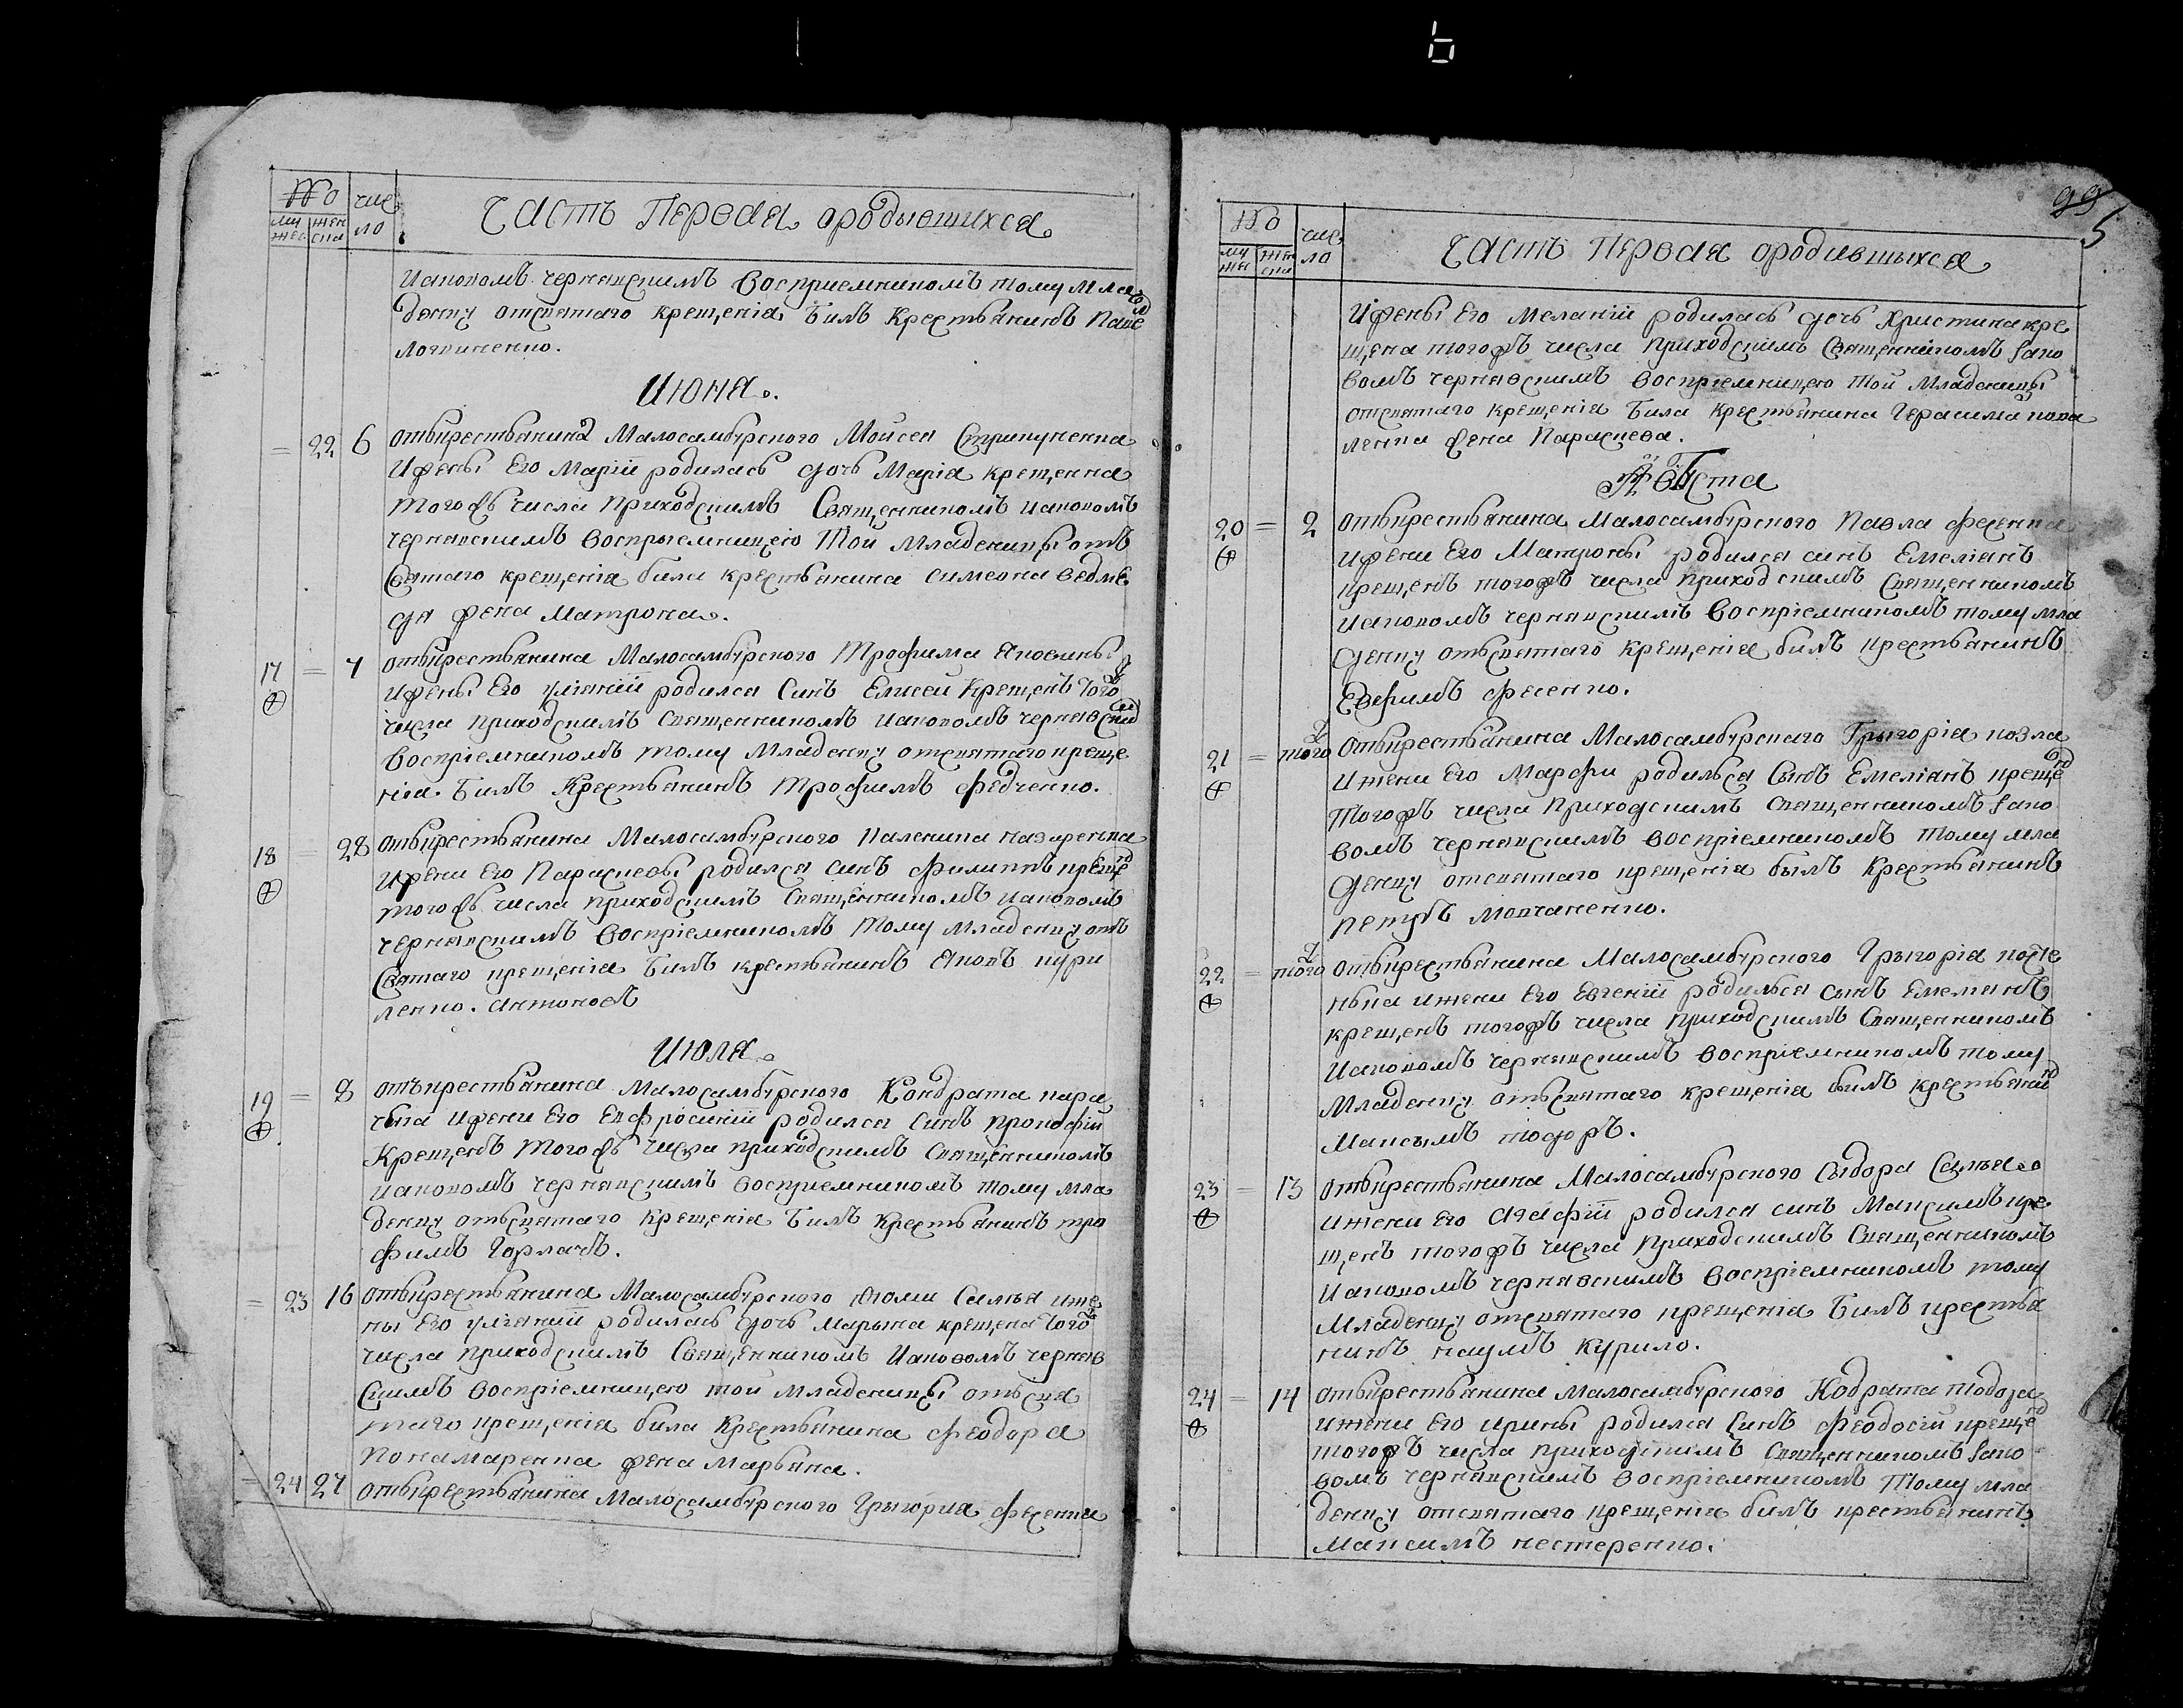 № чис
му жес жен ска ло
Часть Первая ородывшихся
Иаковомъ чернявскимъ восприемникомъ тому мла
денцу отсвятаго крещенія билъ крестьянинъ Паве
Логвиненко.
Июня.
= 22 6 отъкрестьянина Малосамбурского Моисея Стрипуненка
Ижены Его Маріи родилась дочь Марія крещенна
тогожъ числа приходскимъ Священникомъ Иаковомъ
чернявскимъ восприемницею той младеницы отъ
Святаго крещенія била крестьянина Симеона ведме
дя жена Матрона.
17 = 7 отъкрестьянина Малосамбурского Трофима Яковины
Ижены Его уліяніи родился Синъ Елисей крещенъ тогожъ
числа приходскимъ священникомъ Иаковомъ чернявским
воспріемникомъ тому младенцу отсвятаго креще
нія билъ крестьянинъ Трофимъ Федченко.
18 = 28 отъкрестьянина Малосамбурского Назаренка
Ижени Его Параскевы родился синъ Филиппъ крещен
тогожъ числа приходскимъ священникомъ Иаковомъ
чернявскимъ воспріемникомъ тому младенцу отъ
Святаго крещенія билъ крестьянинъ Яковъ кури
ленко. Антоновъ
Июля.
19 = 8 отъкрестьянина Малосамбурского Кондрата
Ижени Его Евфросиніи родился Синъ Прокофій
крещенъ тогожъ числа приходскимъ священникомъ
Иаковомъ чернявскимъ восприемникомъ тому мла
денцу отъсвятаго крещенія билъ крестьянинъ тро
фимъ Горлачъ.
= 23 16 отъкрестьянина Малосамбурского Юоми Салтья иже
ны Его уліяніи родилась дочь Марьяна крещена тогожъ
числа приходскимъ Священникомъ Иаковомъ черняв
скимъ воспріемницею той младеницы отъсвя
таго крещенія била крестьянина Феодора
Понамаренка жена Марьяна.
= 24 27 отъкрестьянина Малосамбурского Грыгорія Фесенка
99
5
№ чис
му жес жен ска ло
Часть Первая ородившыхся
Ижены Его Меланіи родилась дочь Христина кре
щена тогожъ числа приходскимъ Священникомъ Іако
вомъ чернявскимъ воспріемницею той младеницы
отсвятаго крещенія била крестьянина Герасима кова
ленка жена Параскева.
Августа
20 = 2 отъкрестьянина Малосамбурского Павла Фесенка
ижени Его Матроны родился синъ Емеліянъ
крещенъ тогожъ числа приходскимъ Священникомъ
Иаковомъ чернявскимъ воспріемникомъ тому мла
денцу отъсвятаго крещенія билъ крестьянинъ
Евфимъ Фесенко.
21 = тогож отъкрестьянина Малосамбурскаго Грыгорія козла
ижени Его Марфи родилься Сынъ Емеліянъ креще
тогожъ числа приходскимъ священникомъ Іако
вомъ чернявскимъ воспріемникомъ тому мла
денцу отсвятаго крещенія былъ крестьянинъ
петръ Мовчаненко.
22 = тогож отъкрестьянина Малосамбурского Грыгорія косте
нька ижени Его Евгеніи родилься Сынъ Емелианъ
крещенъ тогожъ числа приходскимъ Священникомъ
Иаковомъ чернявскимъ воспріемникомъ тому
младенцу отъсвятаго крещенія былъ крестьянин
Максымъ тодоръ.
23 = 13 отъкрестьянина Малосамбурского Сыдора Салтья
ижени Его Агафіи родился синъ Максимъ кре
щенъ тогожъ числа приходскимъ Священникомъ
Иаковомъ чернявскимъ воспріемникомъ тому
младенцу отсвятаго крещенія билъ крестья
нинъ наумъ Курило.
24 = 14 отъкрестьянина Малосамбурского Кодрата
ижени Его ирины родился Синъ Феодосій креще
тогожъ числа приходскимъ Священникомъ Іако
вомъ чернявскимъ воспріемникомъ тому мла
денцу отсвятаго крещенія билъ крестьянинъ
Максимъ нестеренко.